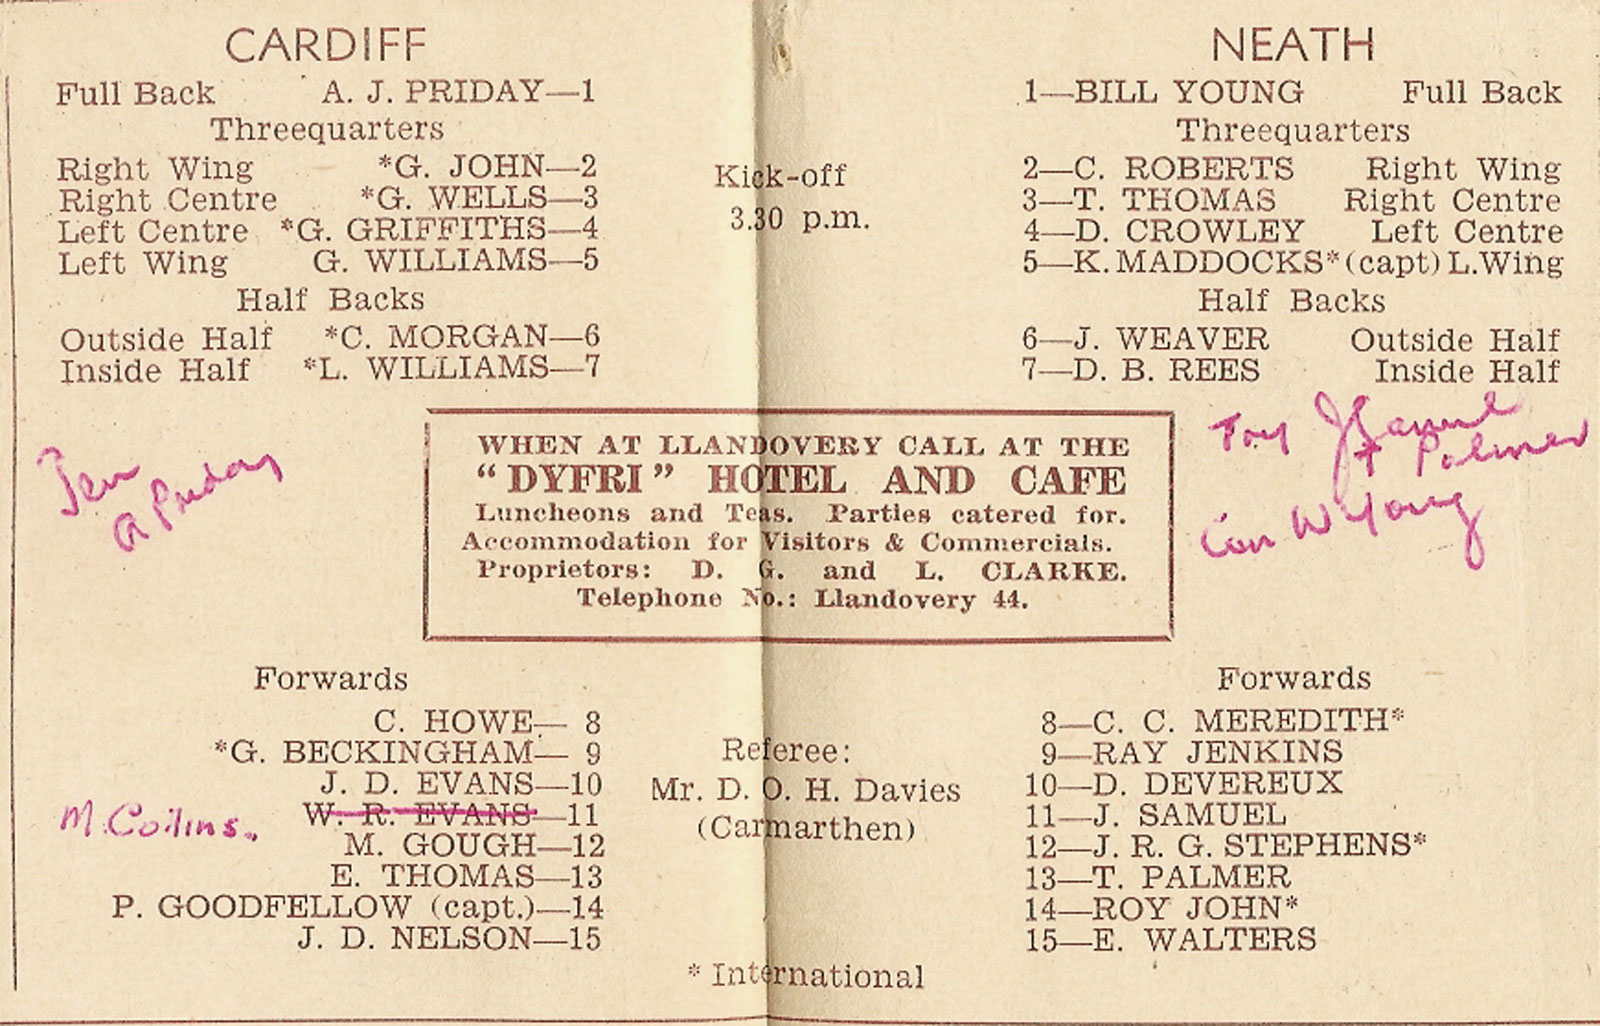 CARDIFF
Full Back A. J. PRIDAY—1
Threequarters
Right Wing *G. JOHN—2
Right Centre *G. WELLS—3
Left Centre *G. GRIFFITHS—4
Left Wing G. WILLIAMS—5
Half Backs
Outside Half *C. MORGAN—6
Inside Half *L. WILLIAMS—7
Kick-off
3.30 p.m.
NEATH
1—BILL YOUNG Full Back
Threequarters
2—C. ROBERTS Right Wing
3—T. THOMAS Right Centre
4—D. CROWLEY Left Centre
5—K. MADDOCKS* (capt) L. Wing
Half Backs
6—J. WEAVER Outside Half
7—D. B. REES Inside Half
Pen
A Priday
WHEN AT LLANDOVERY CALL AT THE
"DYFRI" HOTEL AND CAFE
Luncheons and Teas. Parties catered for.
Accommodation for Visitors & Commercials.
Proprietors: D. G. and L. CLARKE.
Telephone No.: Llandovery 44.
Try J Samuel
+ Palmer
Con W Young
Forwards
C. HOWE— 8
*G. BECKINGHAM— 9
J. D. EVANS—10
M. Collins. W. R. EVANS—11
M. GOUGH—12
E. THOMAS—13
P. GOODFELLOW (capt.)—14
J. D. NELSON—15
Referee:
Mr. D. O. H. Davies
(Carmarthen)
Forwards
8—C. C. MEREDITH*
9—RAY JENKINS
10—D. DEVEREUX
11—J. SAMUEL
12—J. R. G. STEPHENS*
13—T. PALMER
14—ROY JOHN*
15—E. WALTERS
* International